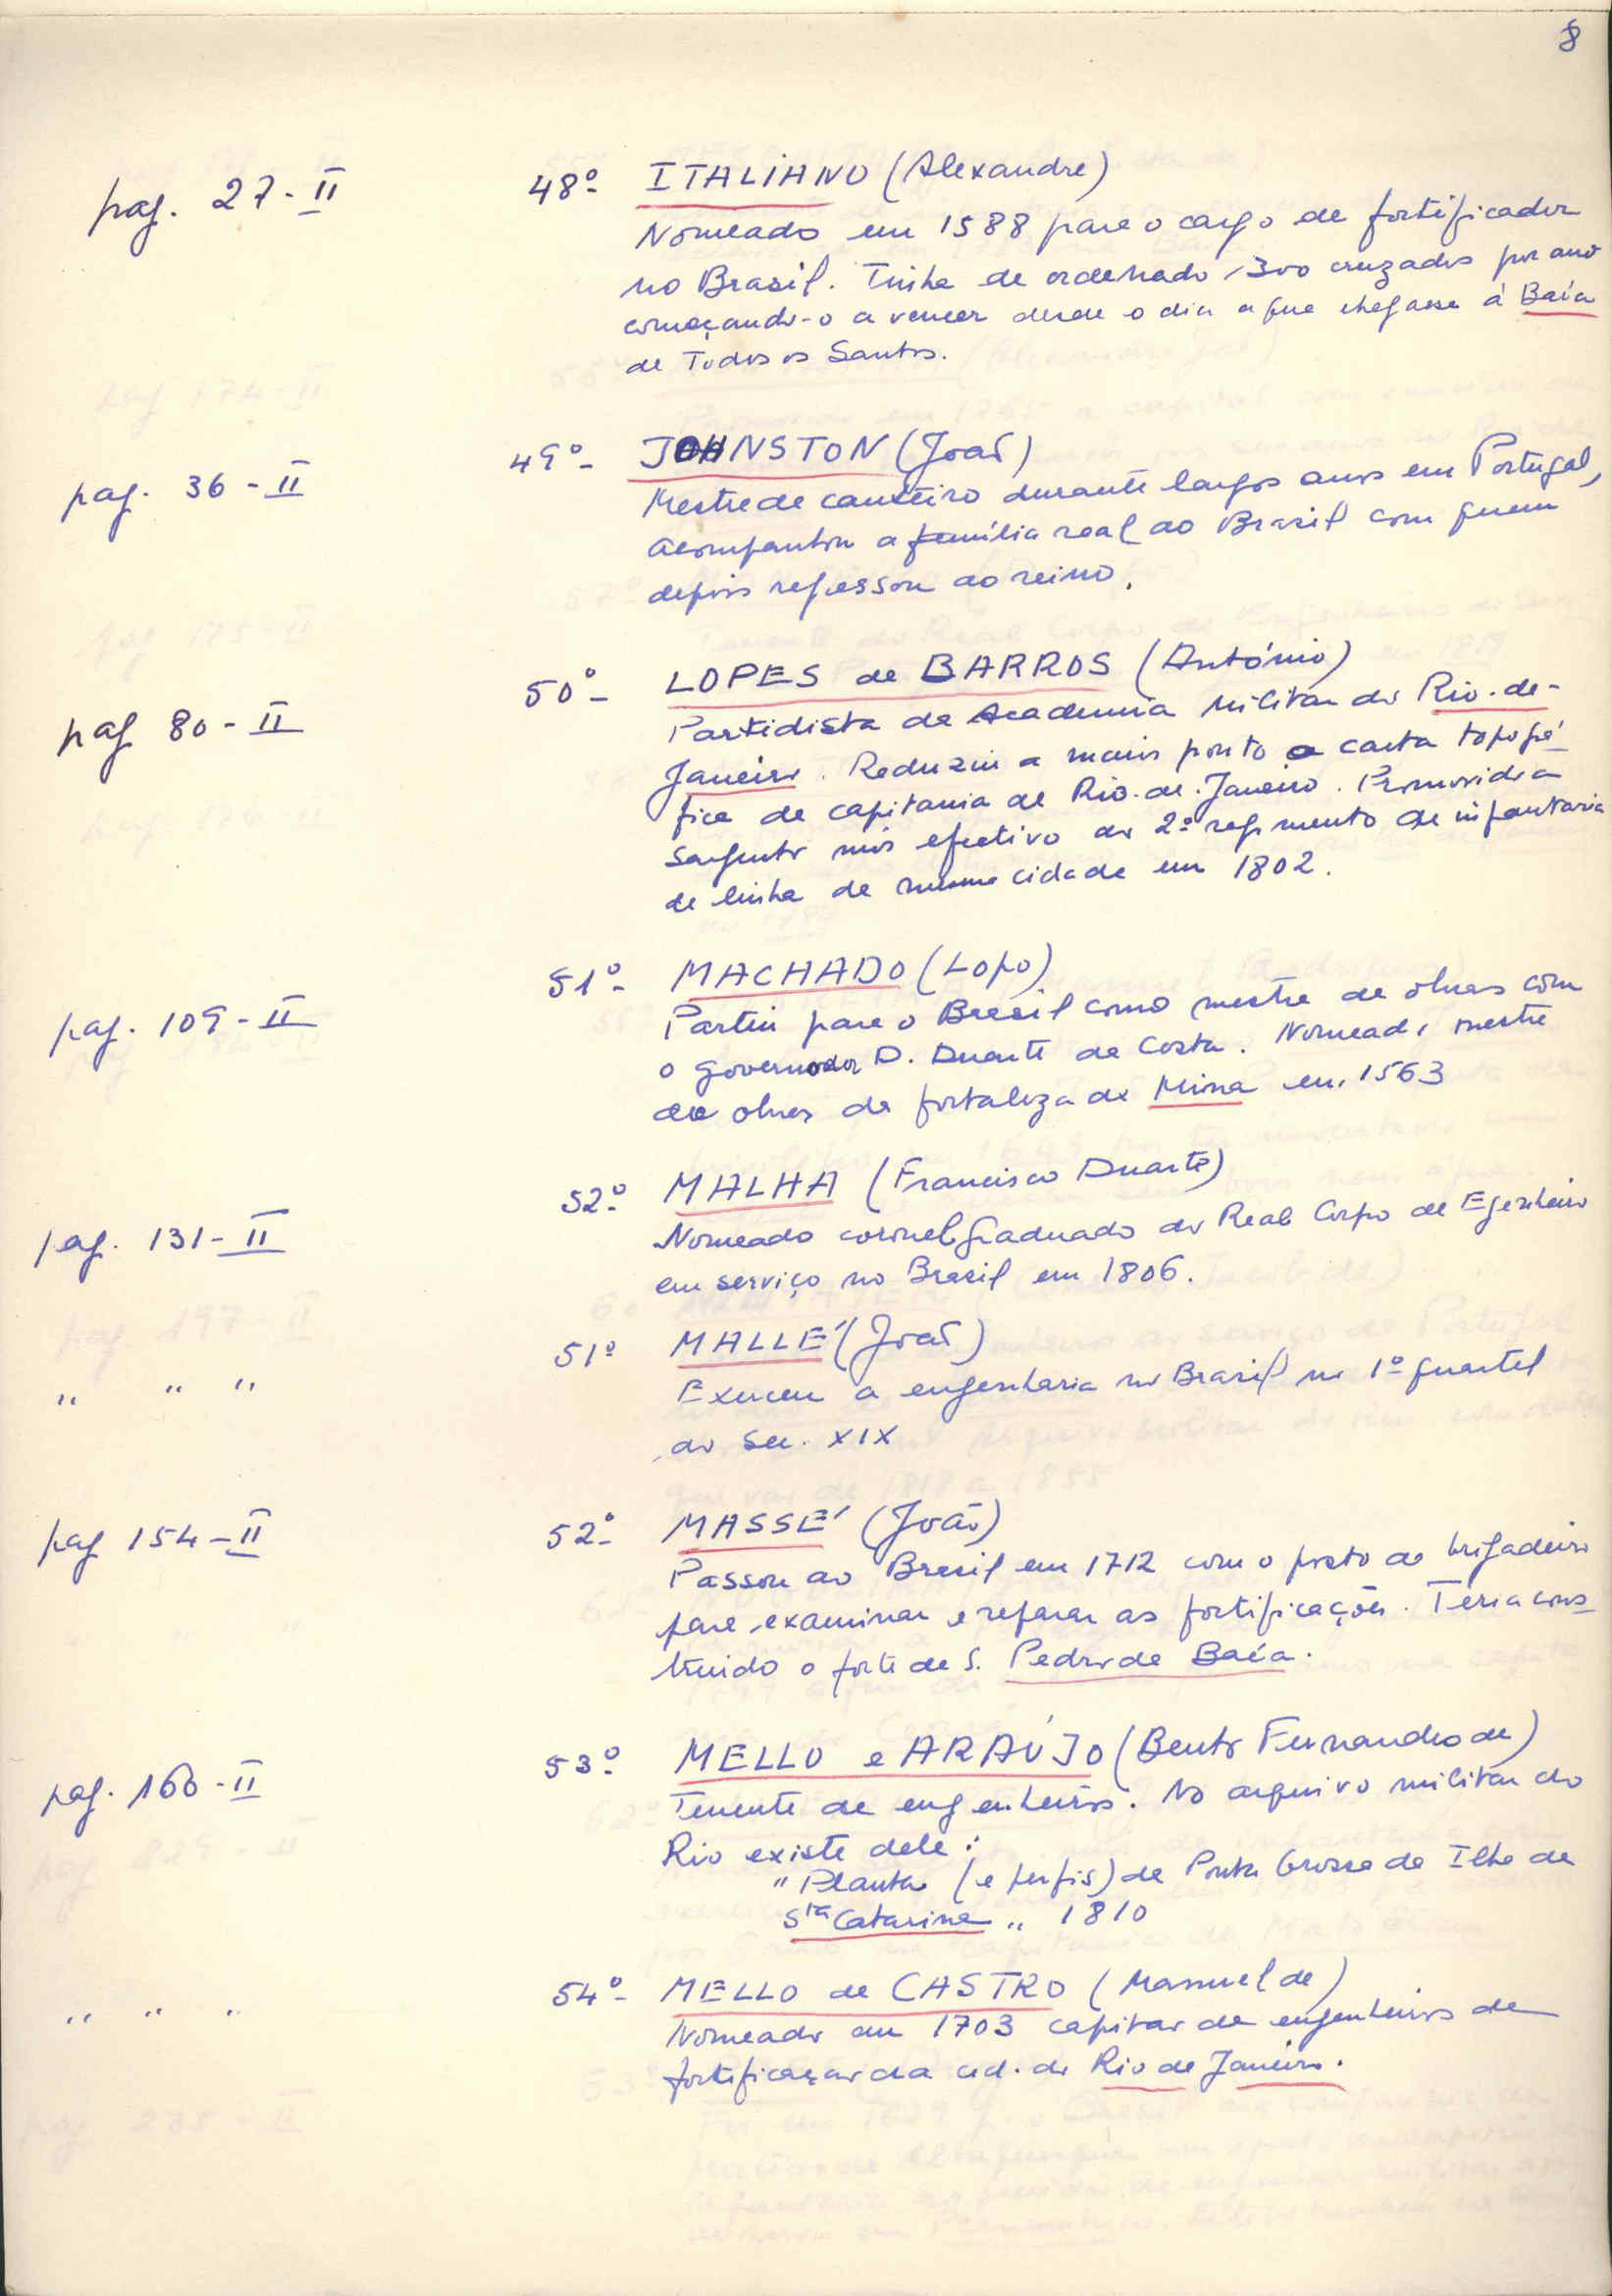 8
pag. 27-II
48º- ITALIANO (Alexandre)
Nomeado em 1588 para o cargo de fortificador
no Brasil. Tinha de ordenado 300 cruzados por ano
começando-o a vencer desde o dia a que chegasse á Baía
de Todos os Santos.
pag. 36-II
49º- JOHNSTON (João)
Mestre de canteiro durante largos anos em Portugal,
acompanhou a família real ao Brasil com quem
depois regressou ao reino.
pag 80-II
50º- LOPES de BARROS (António)
Partidista da Academia Militar do Rio-de-
Janeiro. Reduziu a maior ponto a carta topográ-
fica da capitania de Rio-de-Janeiro. Promovido a
Sargento mór efectivo do 2º regimento de infantaria
de linha da mesma cidade em 1802.
pag. 109-II
51º- MACHADO (Lopo)
Partiu para o Brasil como mestre de obras com
o governador D. Duarte da Costa. Nomeado mestre
de obras da fortaleza da Mina em 1563
pag. 131-II
52º- MALHA (Francisco Duarte)
Nomeado coronel graduado do Real Corpo de Egenheiro
em serviço no Brasil em 1806.
" " "
51º MALLÉ (João)
Exerceu a engenharia no Brasil no 1º quartel
do Sec. XIX
pag 154-II
52º- MASSÉ (João)
Passou ao Brasil em 1712 com o posto de brigadeiro
para examinar e reparar as fortificações. Teria cons-
truido o forte de S. Pedro da Baía.
pag. 160-II
53º- MELLO e ARAÚJO (Bento Fernandes de)
Tenente de engenheiros. No arquivo militar do
Rio existe dele:
"Planta (e perfis) da Ponta Grossa da Ilha de
Sta Catarina" 1810
" " "
54º- MELLO de CASTRO (Manuel de)
Nomeado em 1703 capitao de engenheiros da
fortificaçao da cid. do Rio de Janeiro.